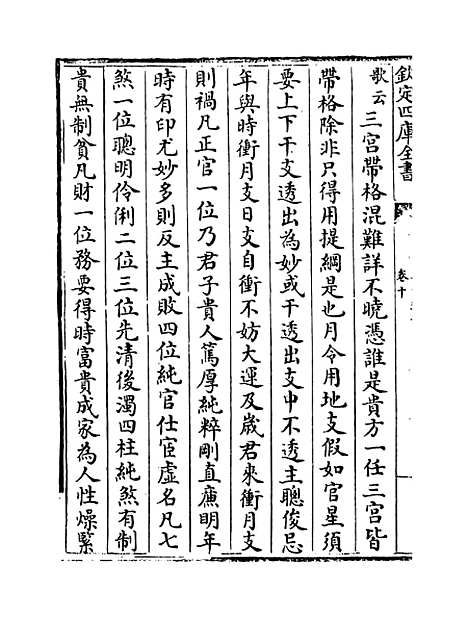 欽定四庫全書
卷十
歌云三宫帶格混難詳不曉憑誰是貴方一任三宫皆
帶格除非只得用提綱是也月令用地支假如官星須
要上下干支透出為妙或干透出支中不透主聰俊忌
年與時衝月支日支自衝不妨大運及歲君來衝月支
則禍凡正官一位乃君子貴人篤厚純粹剛直廉明年
時有印尤妙多則反主成敗四位純官仕宦虛名凡七
煞一位聰明伶俐二位三位先清後濁四柱純煞有制
貴無制貧凡財一位務要得時富貴成家為人性燥緊